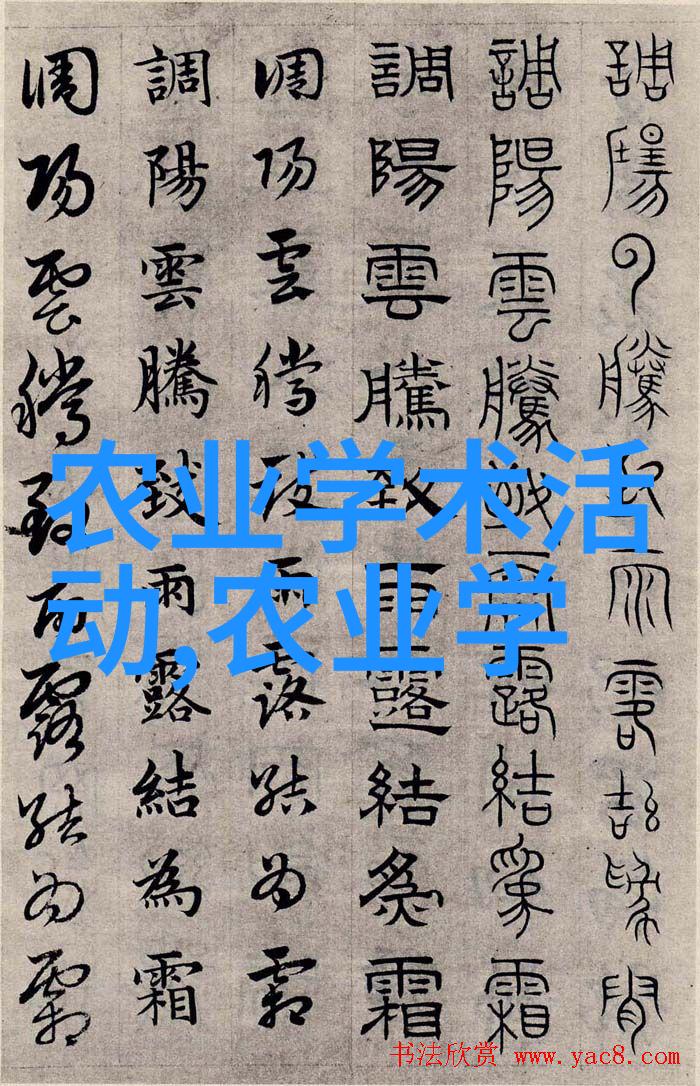 調陽雲騰致雨露結為霜
調陽雲騰致雨露結為霜
調陽雲騰致雨露結為霜
調陽雲騰致雨露結為霜
調陽雲騰致雨露結為霜
調陽雲騰致雨露結為霜
农业学术活
动,农业学
书法欣赏 www.yac8.com